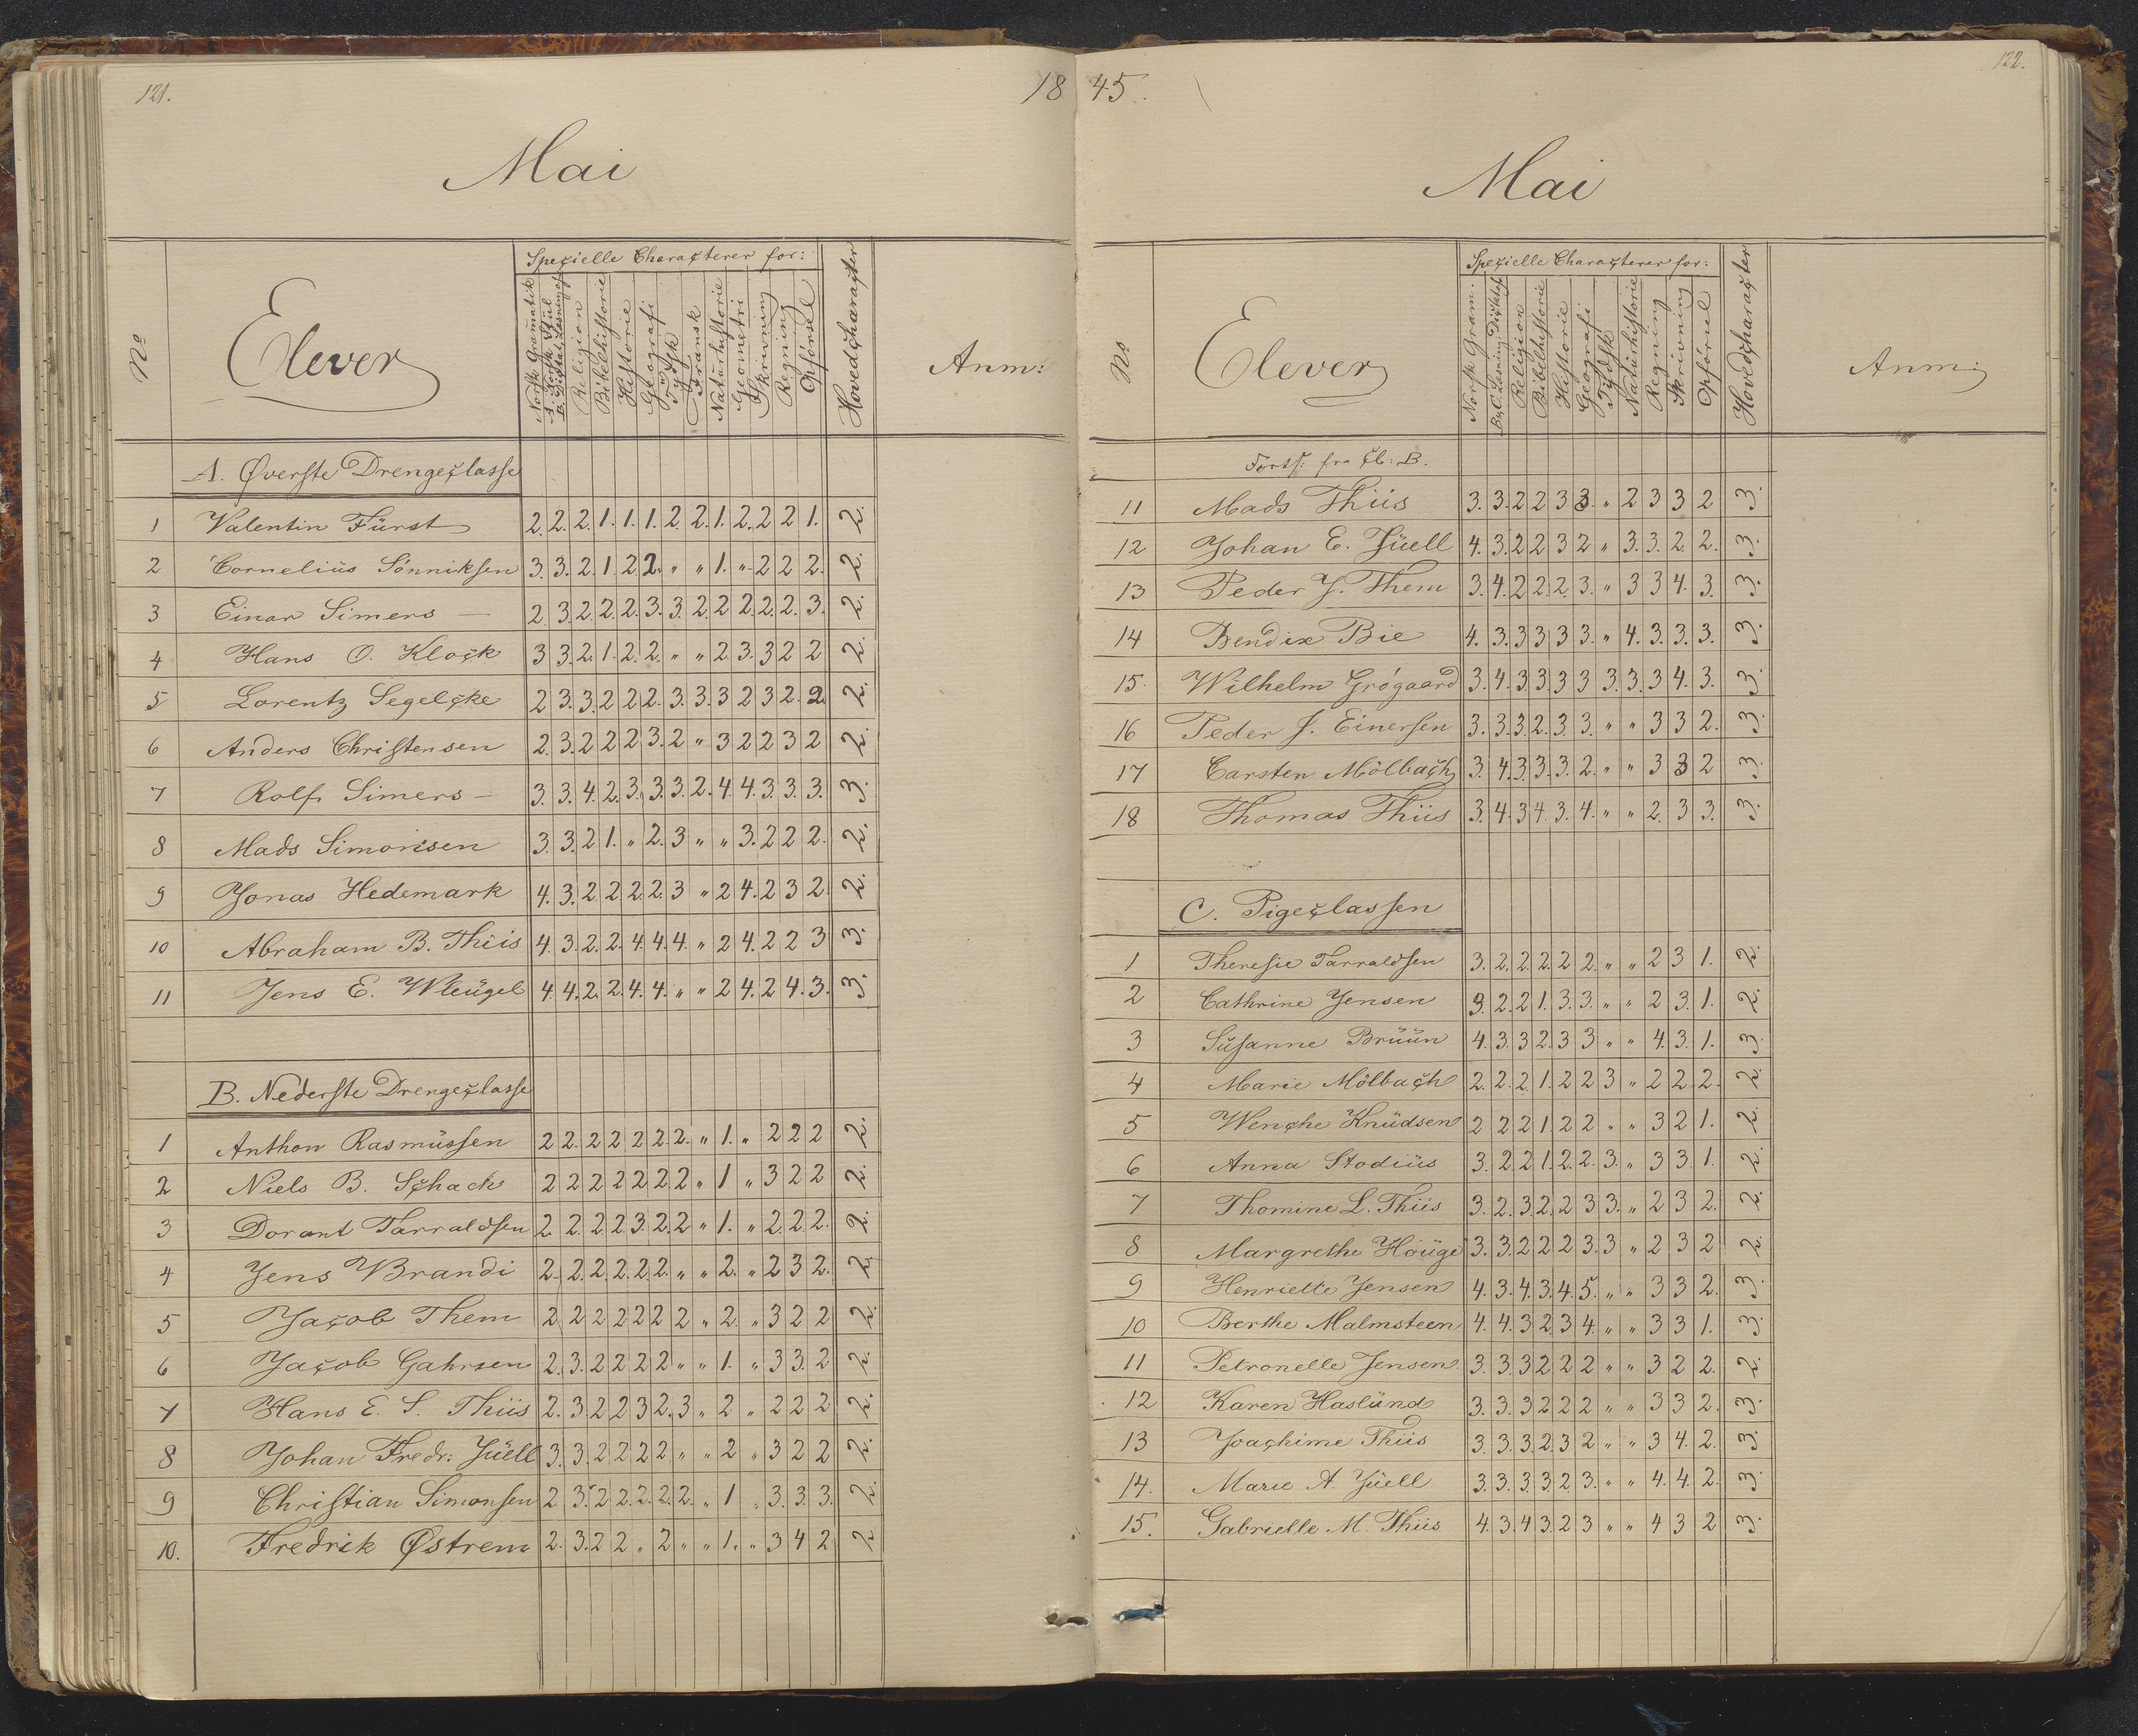 121.
18
Mai
No
Elever
Specielle Characterer for:
Norsk Gramatik
A. Norsk Stiil
B. Diktat, Læsning &
Religion
Bibelhistorie
Historie
Geografi
Tÿdsk
Fransk
Naturhistorie
Geometri
Skrivning
Regning
Opførsel
Hovedcharacter
Anm:
A. Øverste Drengeclasse
1 Valentin Fürst 2. 2. 2. 1. 1. 1. 2. 2. 1. 2. 2 2 1. 2.
2 Cornelius Sønniksen 3. 3. 2. 1. 2 2. " " 1. " 2 2 2. 2.
3 Einar Simers — 2. 3. 2. 2. 2. 3. 3. 2. 2. 2. 2. 2. 3. 2.
4 Hans O. Klock 3 3. 2. 1. 2. 2. " " 2. 3. 3 2 2 2.
5 Lorentz Segelcke 2 3. 3. 2 2 2. 3. 3. 3 2 3 2. 2. 2.
6 Anders Christensen 2. 3. 2 2 2 3. 2 " 3 2 2 3 2 2.
7 Rolf Simers — 3. 3. 4. 2. 3. 3. 3. 2. 4. 4. 3. 3. 3. 3.
8 Mads Simonsen 3. 3. 2 1. " 2. 3 " " 3. 2 2 2. 2.
9 Jonas Hedemark 4. 3. 2. 2 2. 2. 3 " 2 4. 2 3 2. 2.
10 Abraham B. Thiis 4. 3. 2. 2. 4. 4. 4. " 2 4. 2 2 3 3.
11 Jens E. Wleügel 4. 4. 2. 2. 4. 4. " " 2 4. 2 4. 3. 3.
B. Nederste Drengeclasse
1 Anthon Rasmussen 2 2. 2 2 2 2. 2. " 1. " 2 2 2 2.
2 Niels B. Schack 2 2 2 2 2 2. 2 " 1 " 3 2 2 2.
3 Dorant Tarraldsen 2. 2. 2. 2. 3. 2. 2 " 1. " 2. 2. 2. 2.
4 Jens Brandi 2. 2. 2. 2. 2. 2. " " 2. " 2 3 2. 2.
5 Jacob Them 2 2 2 2 2 2 2 " 2. " 3 2 2 2.
6 Jacob Gahrsen 2. 3. 2 2 2 2 " " 1. " 3 3. 2 2.
7 Hans E. S. Thiis 2. 3 2 2 3 2. 3 " 2 " 2 2 2 2.
8 Johan Fredr: Jüell 3. 3. 2 2 2 2 " " 2 " 3 2 2 2.
9 Christian Simonsen 2 3. 2 2. 2. 2. 2. " 1 " 3. 3. 3. 2.
10. Fredrik Østrem 2. 3. 2 2 " 2 " " 1. " 3 4 2 2
122.
45.
Mai
No
Elever
Specielle Characterer for:
Norsk Gram.
B & C. Læsning Dictat &
Religion
Bibelhistorie
Historie
Geografi
Tÿdsk
Naturhistorie
Regning
Skrivning
Opførsel
Hovedcharacter
Anm:
Forts: fra Cl: B.
11 Mads Thiis 3. 3. 2 2 3 3. " 2 3 3 2 3.
12 Johan E. Jüell 4. 3. 2 2 3 2 " 3. 3. 2. 2. 3.
13 Peder J. Them 3. 4. 2 2. 2. 3. " 3 3 4. 3. 3.
14 Bendix Bie 4. 3. 3 3 3 3. " 4. 3. 3. 3. 3.
15. Wilhelm Grøgaard 3. 4. 3. 3. 3 3 3. 3. 3 4. 3. 3.
16 Peder J. Einersen 3. 3. 3. 2. 3. 3. " " 3 3 2. 3.
17 Carsten Mölbach 3. 4. 3. 3. 3. 2. " " 3 3 2 3.
18 Thomas Thiis 3. 4. 3 4. 3. 4. " " 2. 3 3. 3.
C. Pigeclassen
1 Theresie Tarraldsen 3. 2. 2. 2. 2 2. " " 2 3 1. 2.
2 Cathrine Jensen 3. 2. 2 1. 3. 3. " " 2 3. 1. 2.
3 Susanne Brüün 4. 3. 3 2. 3 3 " " 4. 3. 1. 3.
4 Marie Mölbach 2. 2. 2. 1. 2 2 3 " 2 2 2. 2.
5 Wenche Knüdsen 2 2 2 1. 2 2 " " 3 2 1. 2.
6 Anna Stodiüs 3. 2. 2 1. 2. 2. 3. " 3 3. 1. 2.
7 Thomine L. Thiis 3. 2. 3. 2. 2 3 3. " 2 3 2. 2.
8 Margrethe Höüge 3. 3. 2 2 2 3. 3 " 2 3 2 2.
9 Henriette Jensen 4. 3. 4. 3. 4. 5. " " 3 3 2. 3.
10 Berthe Malmsteen 4. 4. 3 2. 3 4. " " 3 3 1. 3.
11 Petronelle Jensen 3. 3. 3 2 2 2 " " 3 2 2. 2.
12 Karen Haslünd 3. 3. 3 2 2 2 " " 3 3 2. 3.
13 Joachime Thiis 3. 3. 3. 2. 3 2 " " 3 4. 2. 3.
14. Marie A. Jüell 3. 3. 3. 3. 2. 3. " " 4. 4. 2. 3.
15. Gabrielle M. Thiis 4. 3. 4 3. 2 3 " " 4 3 2 3.